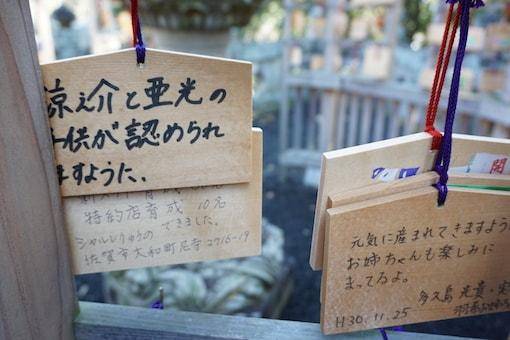 涼之介と亜光の
子供が認められ
ますように、
特約店育成 10名
できました。
佐賀市大和町尼寺2716-19
開
元気に産まれてきますよう
お姉ちゃんも楽しみに
まってるよ。
多久島 光貴・
H30.11.25